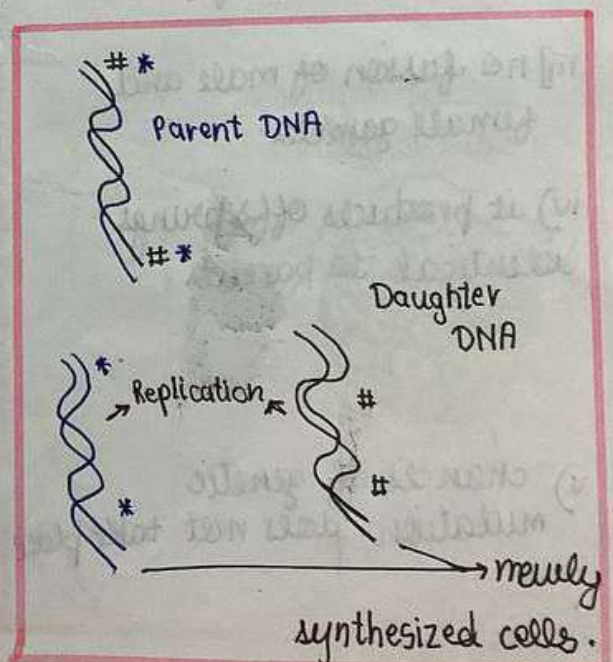 # *
Parent DNA
# *
Daughter
DNA
*
Replication
#
*
#
newly
synthesized cells.